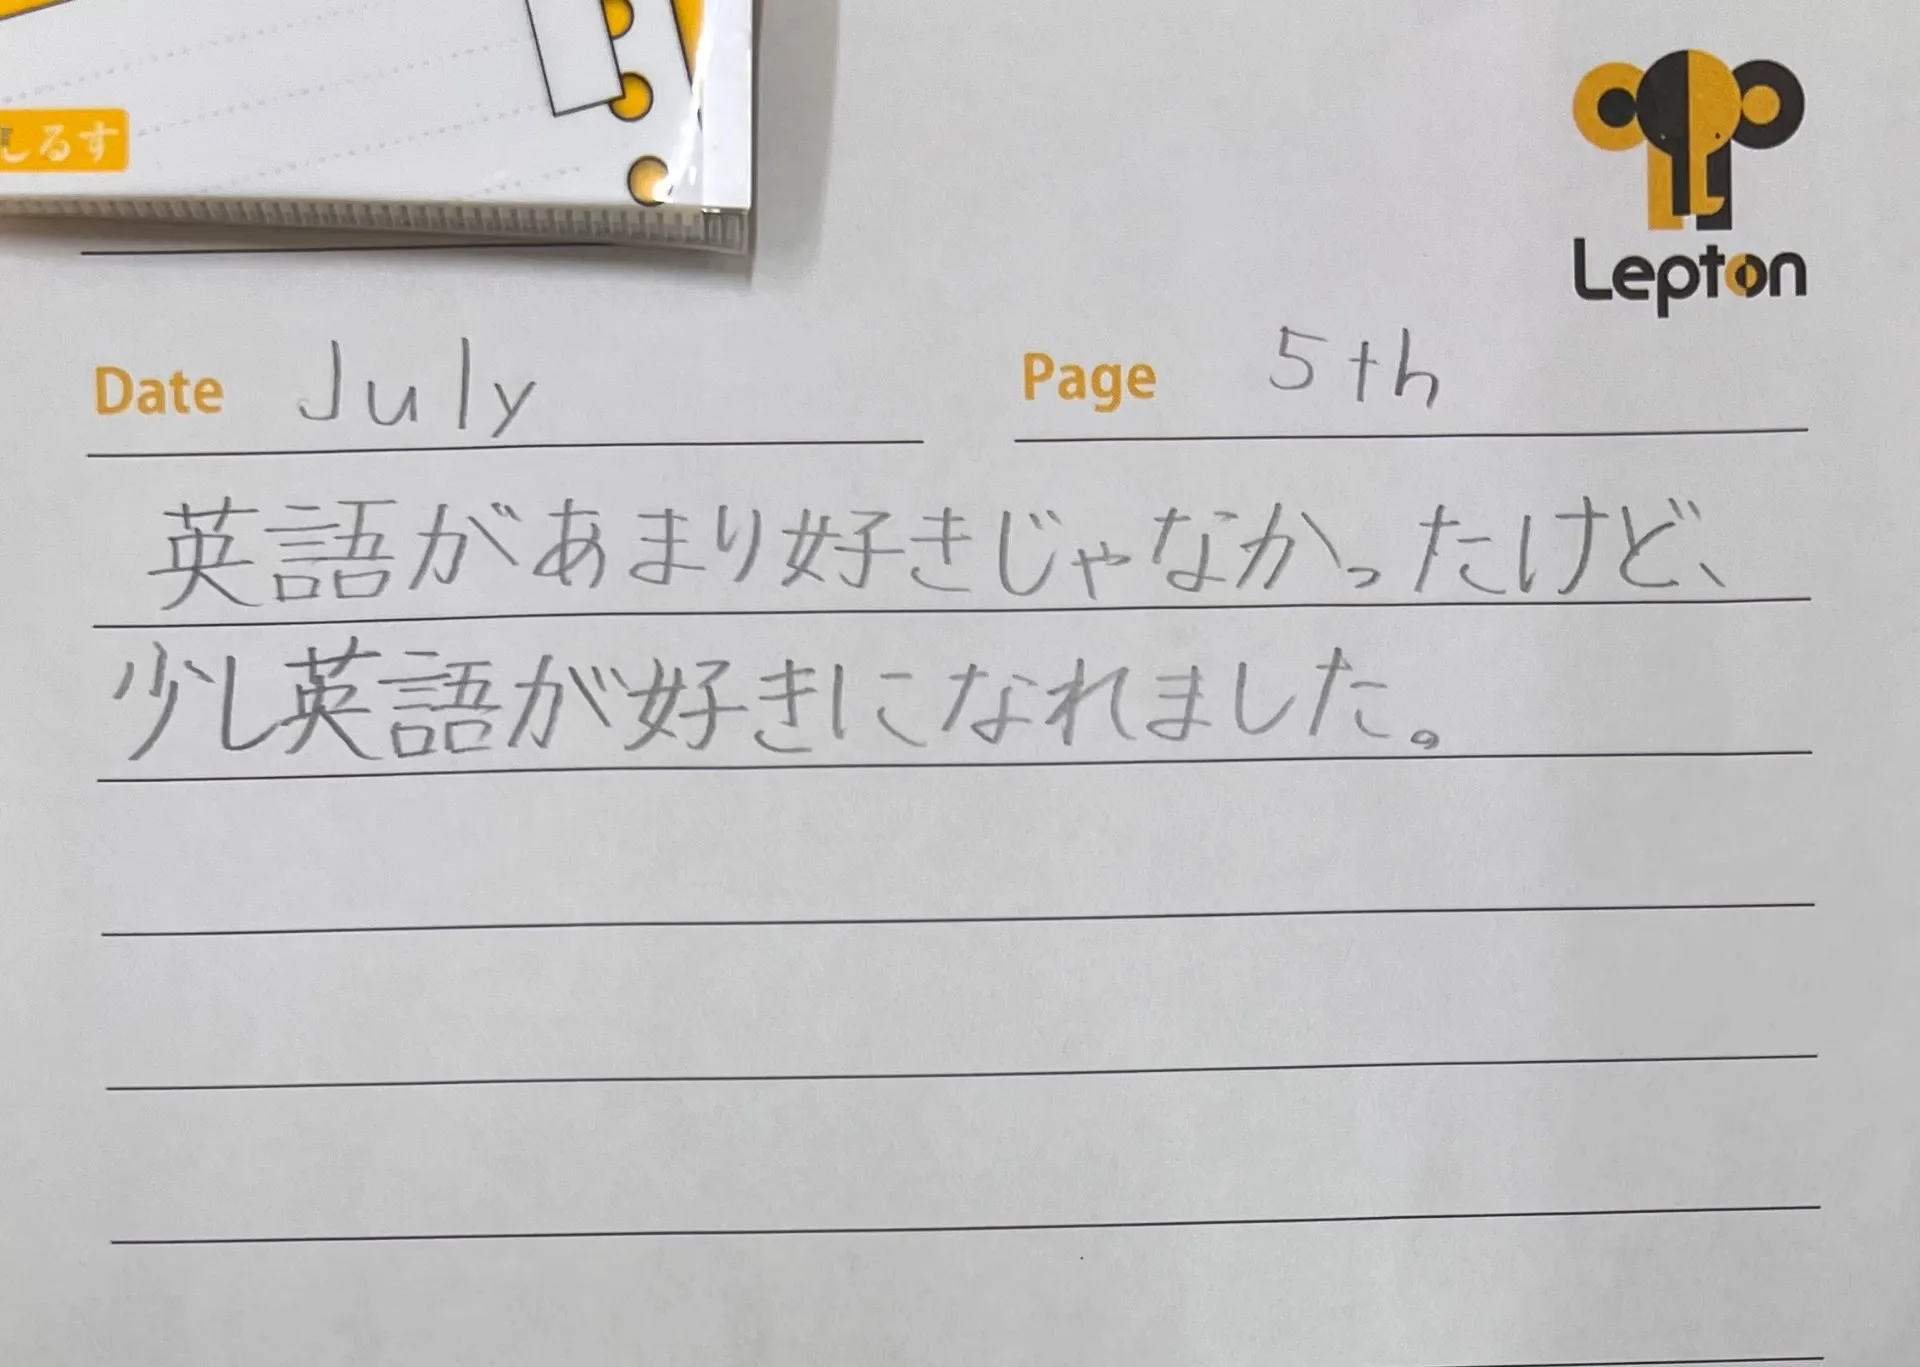 しるす
Lepton
Date July Page 5th
英語があまり好きじゃなかったけど、
少し英語が好きになれました。